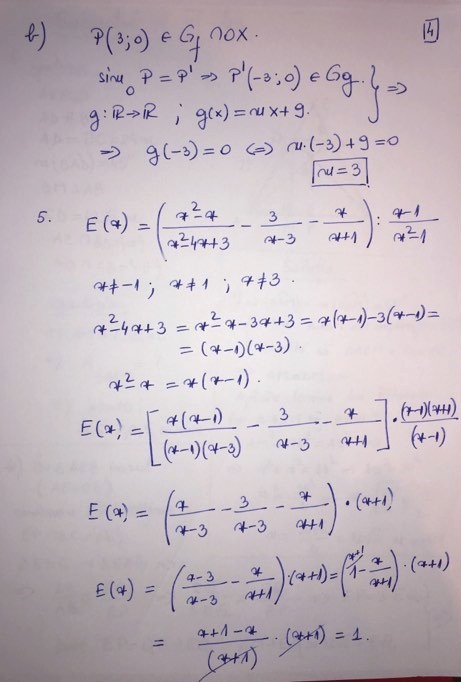 b) P(3;0) ∈ G_f ∩ OX. [4]
sim_O P = P' ⇒ P'(-3;0) ∈ Gg. } ⇒
g: ℝ→ℝ ; g(x) = nx+9.
⇒ g(-3) = 0 ⇔ n·(-3)+9 = 0
n = 3
5. E(x) = (x²-x / x²-4x+3 - 3 / x-3 - x / x+1) : x-1 / x²-1
x≠-1 ; x≠1 ; x≠3.
x²-4x+3 = x²-x-3x+3 = x(x-1)-3(x-1) =
= (x-1)(x-3).
x²-x = x(x-1).
E(x) = [x(x-1) / (x-1)(x-3) - 3 / x-3 - x / x+1] · (x-1)(x+1) / (x-1)
E(x) = (x / x-3 - 3 / x-3 - x / x+1) · (x+1)
E(x) = (x-3 / x-3 - x / x+1) · (x+1) = (x+1) 1 - x / x+1) · (x+1)
= x+1-x / (x+1) · (x+1) = 1.